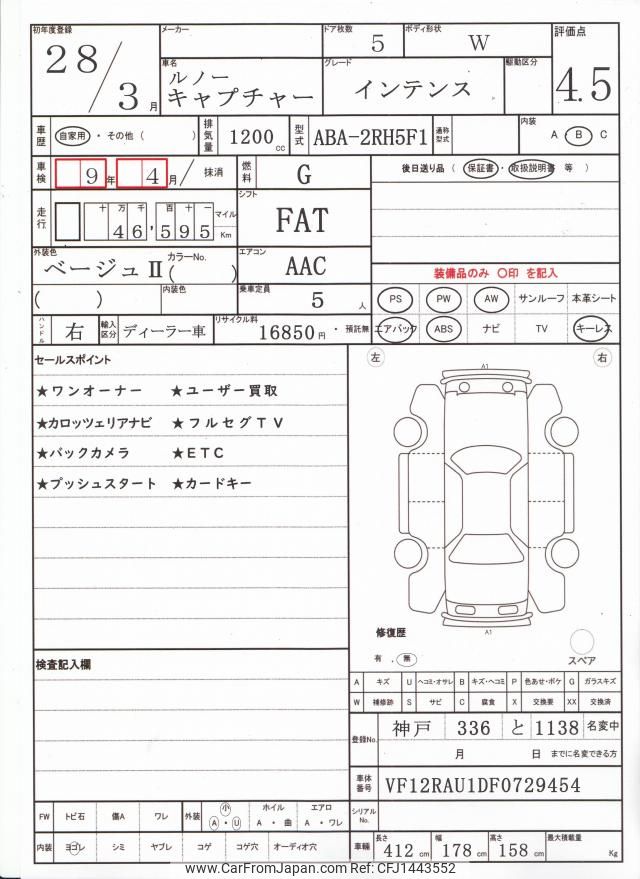 初年度登録 28/3月
メーカー
ドア枚数 5
ボディ形状 W
評価点 4.5
車名 ルノー
キャプチャー
グレード インテンス
駆動区分
車歴 自家用 ・ その他 ( )
排気量 1200 cc
型式 ABA-2RH5F1
通称型式
内装 A B C
車検 9年 4月 / 抹消
燃料 G
後日送り品 ( 保証書 ・ 取扱説明書 等 )
走行 十万千百十一
46,595 マイル Km
シフト FAT
外装色 ベージュⅡ カラーNo. ( )
エアコン AAC
装備品のみ 〇印 を記入
( ) 内装色
乗車定員 5 人
PS PW AW サンルーフ 本革シート
エアバック ABS ナビ TV キーレス
ハンドル 右
輸入区分 ディーラー車
リサイクル料 16850円 ・ 預託無
セールスポイント
★ワンオーナー ★ユーザー買取
★カロッツェリアナビ ★フルセグTV
★バックカメラ ★ETC
★プッシュスタート ★カードキー
左 右
A1
A1
修復歴
有 . 無
スペア
検査記入欄
A キズ U ヘコミ・オサレ B キズ・ヘコミ P 色あせ・ボケ G ガラスキズ
W 補修跡 S サビ C 腐食 X 交換要 XX 交換済
登録No. 神戸 336 と 1138 名変中
月 日 までに名変できる方
車体番号 VF12RAU1DF0729454
シリアルNo.
FW トビ石 傷A ワレ 外装 小 A ・ U ホイル A ・ 曲 エアロ A ・ ワレ
内装 ヨゴレ シミ ヤブレ コゲ コゲ穴 オーディオ穴
車輛 長さ 412 cm 幅 178 cm 高さ 158 cm 最大積載量 Kg
www.CarFromJapan.com CFJ1443552